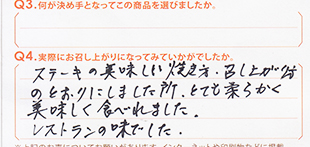 Q3.何が決め手となってこの商品を選びましたか。
Q4.実際にお召し上がりになってみていかがでしたか。
ステーキの美味しい焼き方、召し上がり方
のとおりにしました所、とても柔らかく
美味しく食べれました。
レストランの味でした。